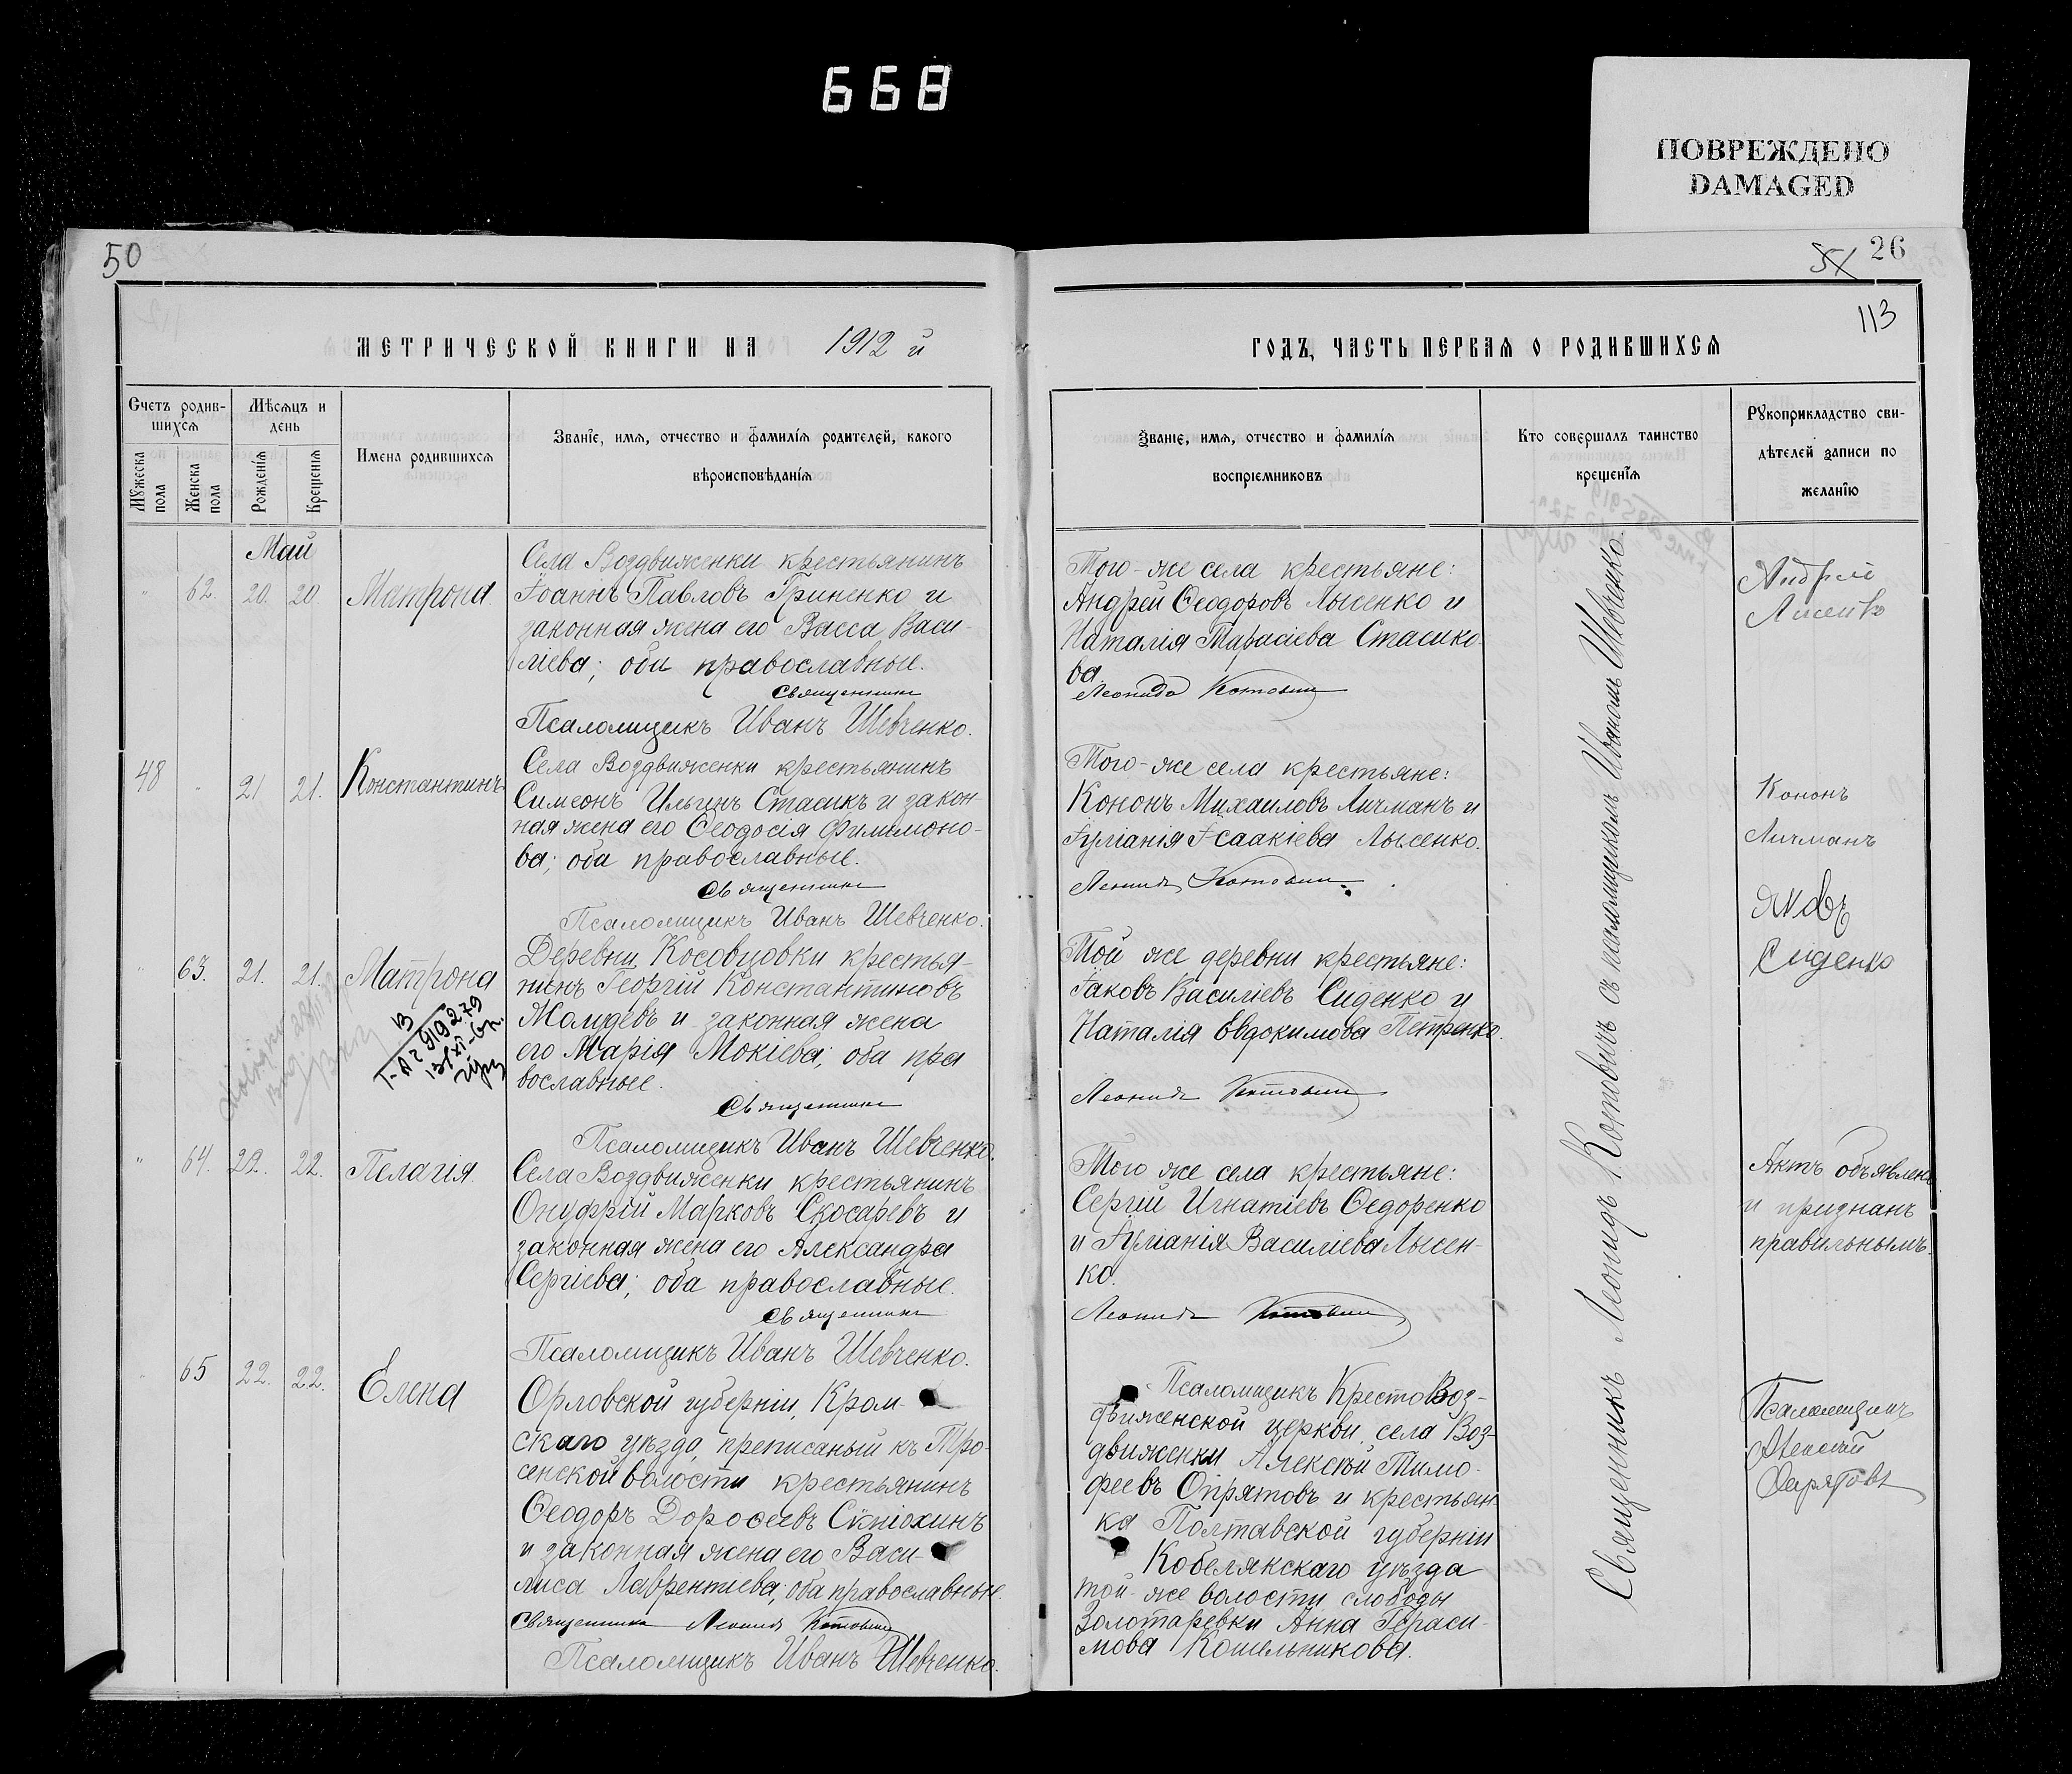 668
ПОВРЕЖДЕНО
DAMAGED
50
МЕТРИЧЕСКОЙ КНИГИ НА 1912 й
Счетъ родив-
шихся
Мѣсяцъ и
день
Имена родившихся
Званіе, имя, отчество и фамилія родителей, какого
вѣроисповѣданія
Мужеска
пола
Женска
пола
Рожденія
Крещенія
Май
62. 20. 20 Матрона
Села Воздвиженки крестьянинъ
Іоаннъ Павловъ Гриненко и
законная жена его Васса Васи-
ліева; оби православные.
Священникъ
Псаломщикъ Иванъ Шевченко.
48 21 21. Константинъ
Села Воздвиженки крестьянинъ
Симеонъ Ильинъ Стасикъ и закон-
ная жена его Ѳеодосія Филимоно-
ва; оба православные.
Священникъ
Псаломщикъ Иванъ Шевченко.
63. 21. 21. Матрона
Деревни Косовцовки крестья-
нинъ Георгій Константиновъ
и законная жена
его Марія Мокіева; оба пра
вославные.
Священникъ
Псаломщикъ Иванъ Шевченко.
64. 22. 22. Пелагія
Села Воздвиженки крестьянинъ
Онуфрій Марковъ Скосаревъ и
законная жена его Александра
Сергіева; оба православные.
Священникъ
Псаломщикъ Иванъ Шевченко.
65 22. 22. Елена
Орловской губерніи, Кром-
скаго уѣзда, преписаный къ Тро-
сенской волости крестьянинъ
Ѳеодоръ Дороѳеевъ
и законная жена его Васи-
лиса Лаврентіева; оба православные.
Священникъ Леонидъ Котовичъ
Псаломщикъ Иванъ Шевченко.
51 26
113
ГОДЪ, ЧАСТЬ ПЕРВАЯ О РОДИВШИХСЯ
Званіе, имя, отчество и фамилія
воспріемниковъ
Кто совершалъ таинство
крещенія
Рукоприкладство сви-
дѣтелей записи по
желанію
Того-же села крестьяне:
Андрей Ѳеодоровъ Лысенко и
Наталія Тарасіева Стасико
ва.
Леонидъ Котовичъ
Того-же села крестьяне:
Кононъ Михаиловъ Личманъ и
Іуліанія Ісаакіева Лысенко.
Леонидъ Котовичъ
Той же деревни крестьяне:
Іаковъ Василіевъ Сиденко и
Наталія Евдокимова Петренко.
Леонидъ Котовичъ
Того же села крестьяне:
Сергій Игнатіевъ Ѳедоренко
и Іуліанія Василіева Лысен-
ко.
Леонидъ Котовичъ
Псаломщикъ КрестоВоз-
движенской церкви села Воз-
движенки Алексѣй Тимо-
феевъ Опрятовъ и крестьян
ка Полтавской губерніи
Кобелякскаго уѣзда
той-же волости слободы
Золотаревки Анна Гераси-
мова Кошельникова.
Священникъ Леонидъ Котовичъ съ псаломщикомъ Иваномъ Шевченко.
Андрей
Лисенко
Кононъ
Личманъ
Яковъ
Сиденко
Актъ объявленъ
и признанъ
правильнымъ.
Псаломщикъ
Алексѣй
Опрятовъ